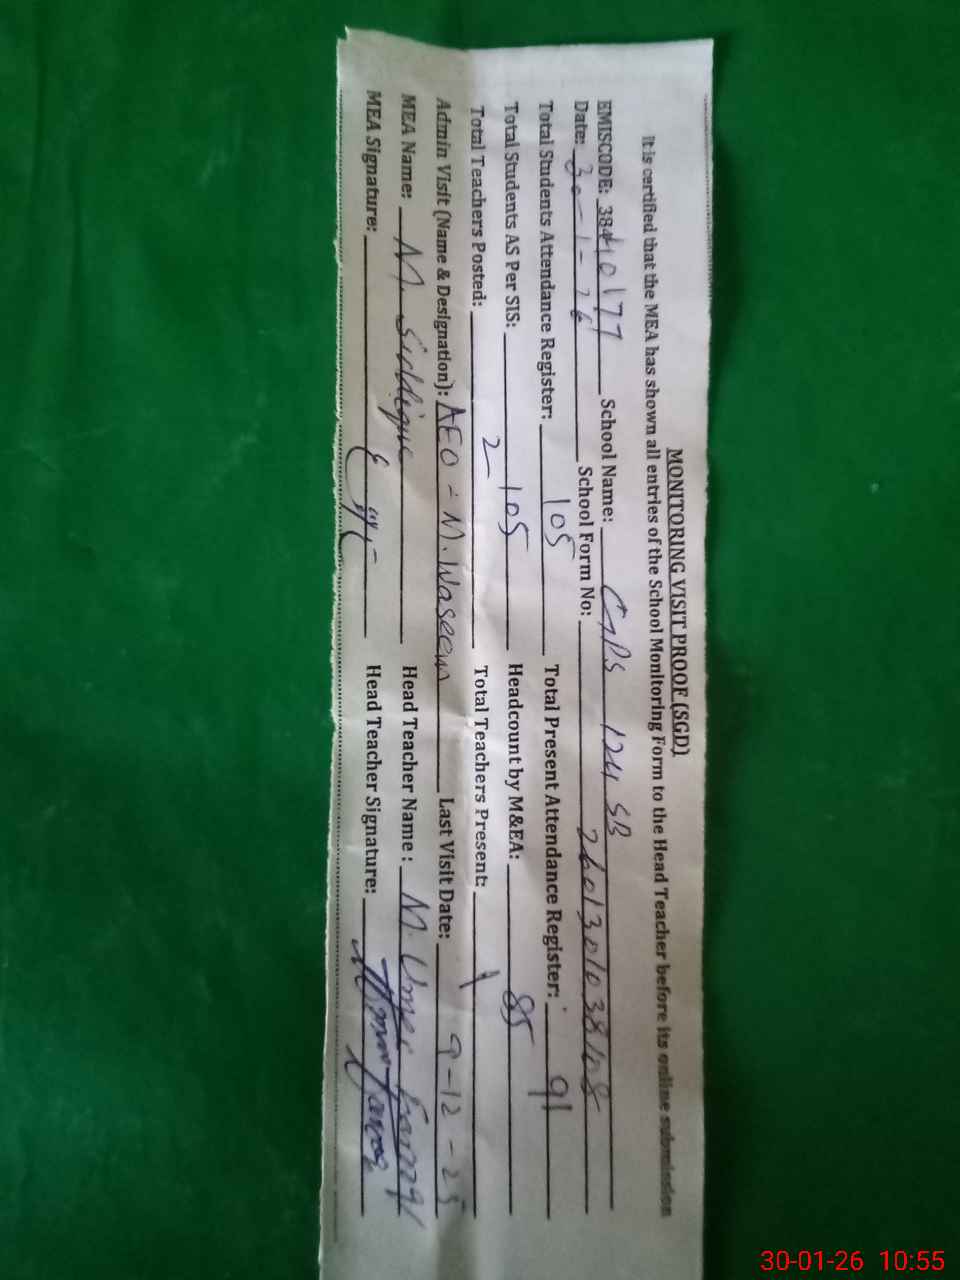 MONITORING VISIT PROOF (SGD)
It is certified that the MEA has shown all entries of the School Monitoring Form to the Head Teacher before its online submission
EMISCODE: 38410177 School Name: GPS 124 SB
Date: 30-1-26 School Form No: 2601301038108
Total Students Attendance Register: 105 Total Present Attendance Register: 91
Total Students AS Per SIS: 105 Headcount by M&EA: 85
Total Teachers Posted: 2 Total Teachers Present: 1
Admin Visit (Name & Designation): AEO - M. Waseem Last Visit Date: 9-12-25
MEA Name: M. Siddique Head Teacher Name: M. Umer Farooq
MEA Signature: Head Teacher Signature:
30-01-26 10:55